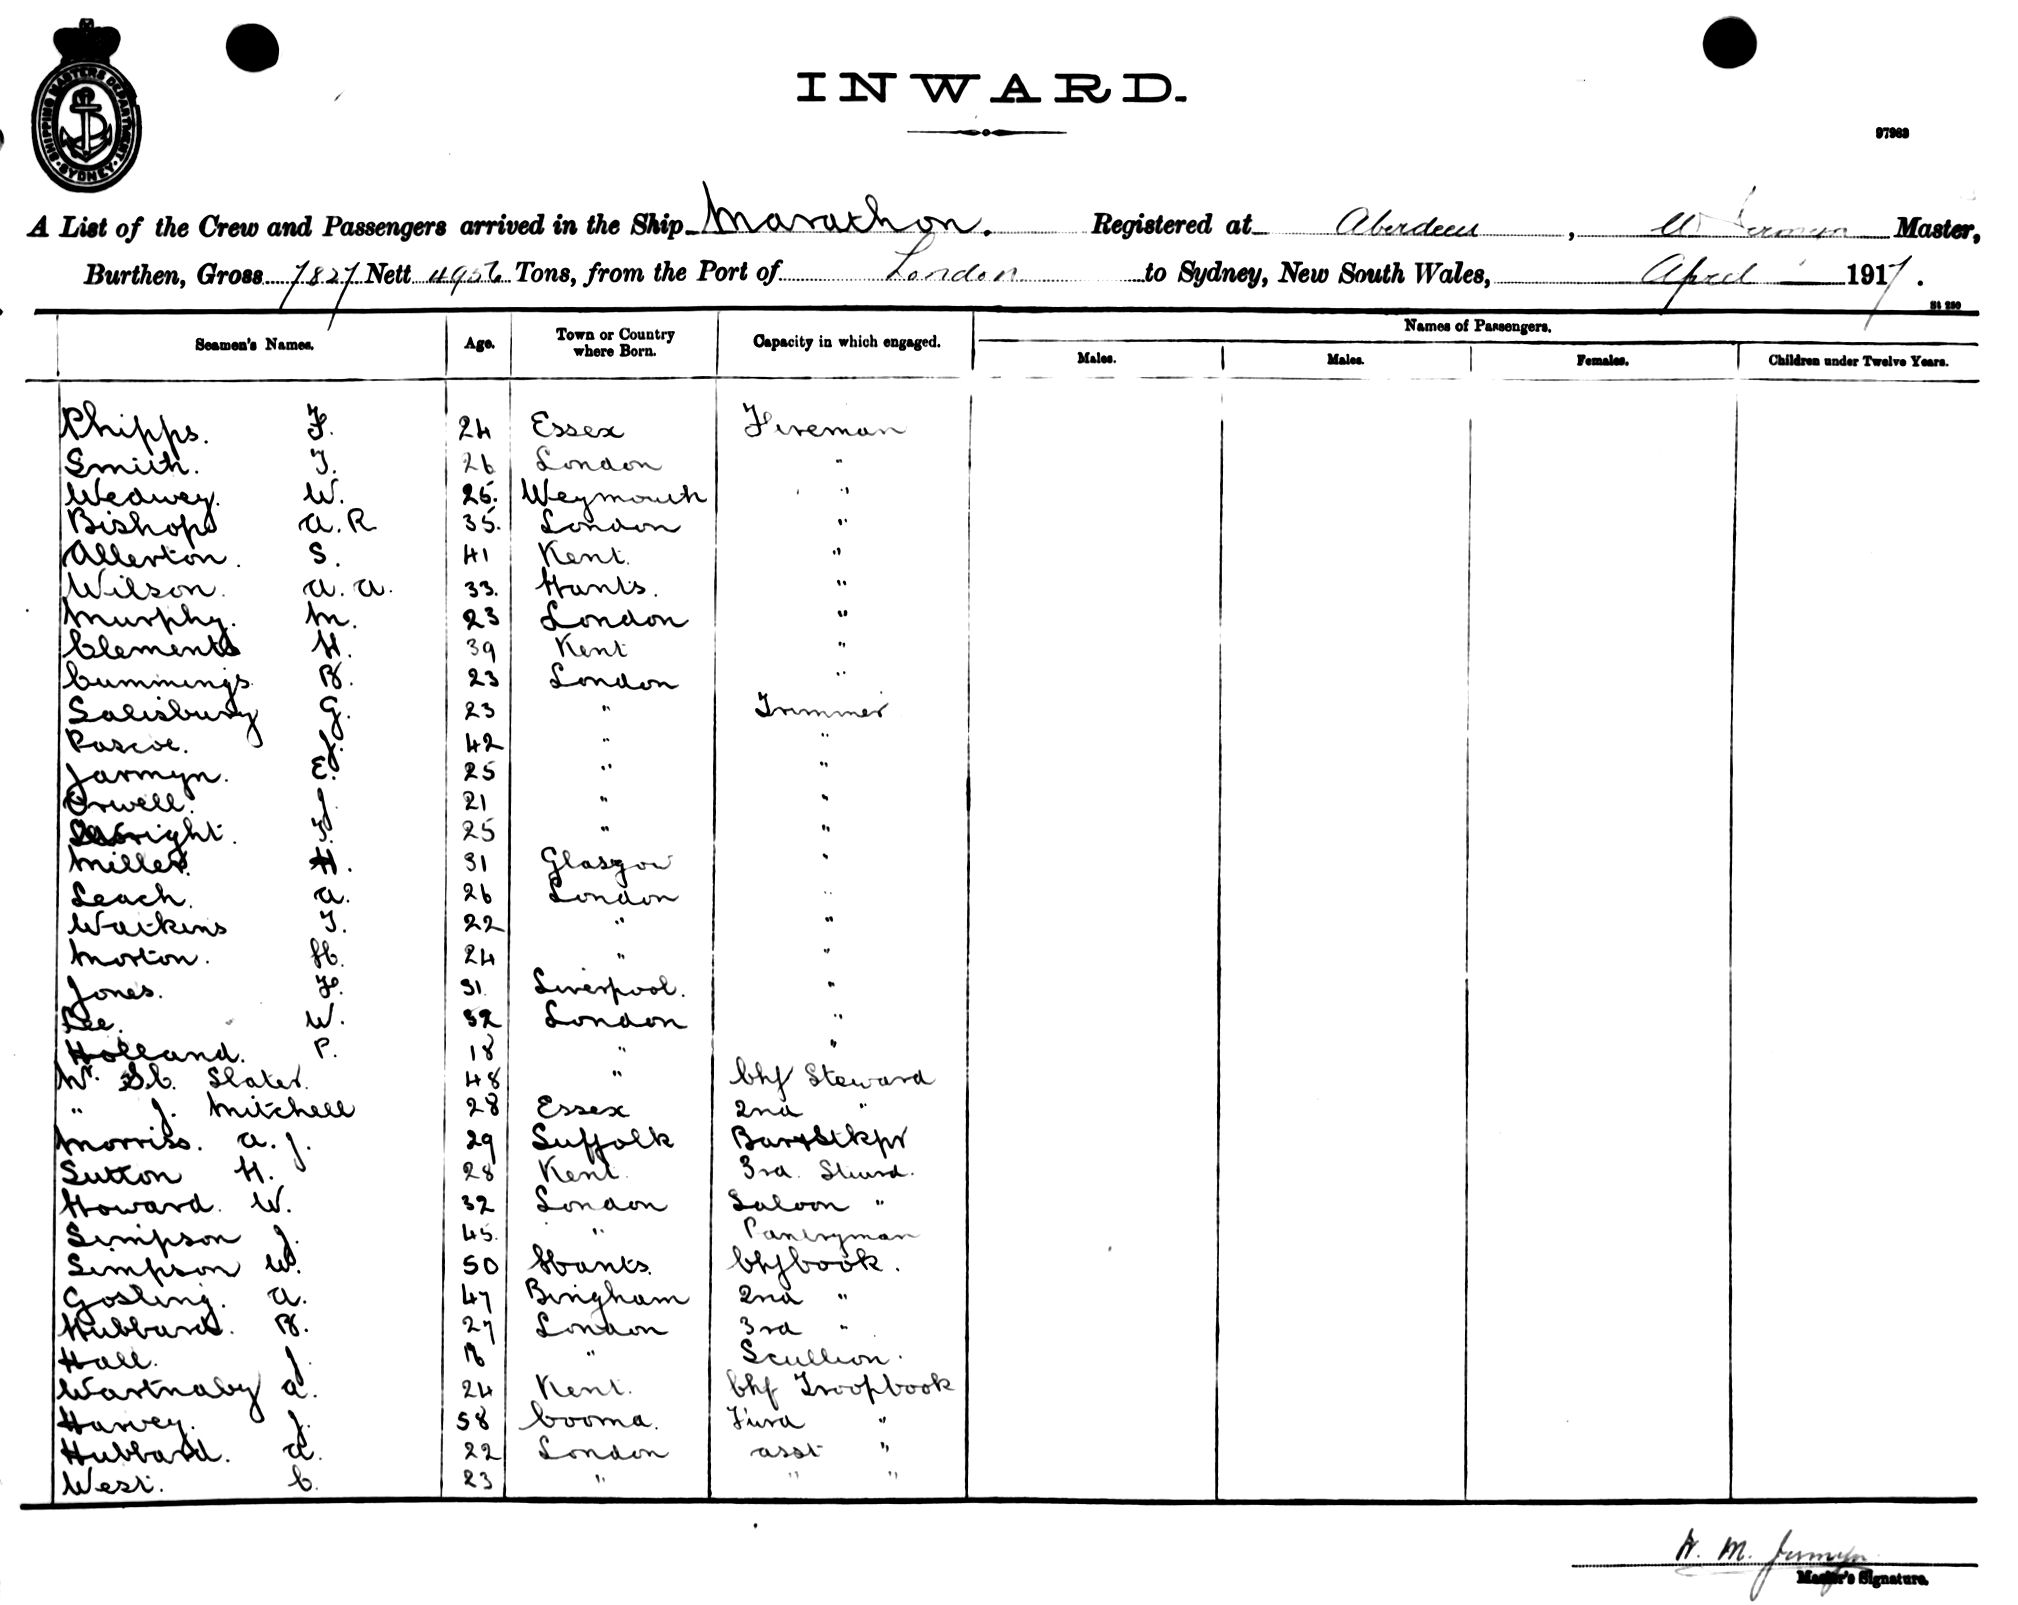 SHIPPING MASTERS DEPARTMENT. SYDNEY.
INWARD.
97983
A List of the Crew and Passengers arrived in the Ship Marathon. Registered at Aberdeen, Master,
Burthen, Gross 7827 Nett 4956 Tons, from the Port of London to Sydney, New South Wales, April 1917.
St 280
Seamen's Names. Age. Town or Country where Born. Capacity in which engaged. Names of Passengers.
Males. Males. Females. Children under Twelve Years.
Phipps. F. 24 Essex Fireman
Smith. T. 26 London "
Wedwey. W. 25. Weymouth "
Bishop A. R 35. London "
Allerton. S. 41 Kent. "
Wilson. A. A. 33. Hants. "
Murphy. M. 23 London "
Clements H. 39 Kent "
Cummings B. 23 London "
Salisbury G. 23 " Trimmer
Pascoe. J. 42 " "
Jarmyn. E. 25 " "
Orwell. J. 21 " "
right. T. 25 " "
Miller. H. 31 Glasgow "
Leach. A. 26 London "
Watkins T. 22 " "
Morton. H. 24 " "
Jones. F. 31. Liverpool. "
Lee. W. 32 London "
Holland. P. 18 " "
Mr. Slater. 48 " Chf Steward
" J. Mitchell 28 Essex 2nd "
Morriss. A. J. 29 Suffolk Bar & Stkpr
Sutton H. 28 Kent. 3rd. Stward.
Howard. W. 32 London Saloon "
Simpson J. 45. " Pantryman
Simpson W. 50 Hants. Chf Cook.
Gosling. A. 47 Bingham 2nd "
Hubbard. B. 27 London 3rd "
Hall. J. 16 " Scullion.
Wartnaby A. 24 Kent. Chf Troop Cook
Harvey. J. 58 Cooma. "
Hubbard. A. 22 London asst "
West. C. 23 " " "
W. M. Jermyn
Master's Signature.